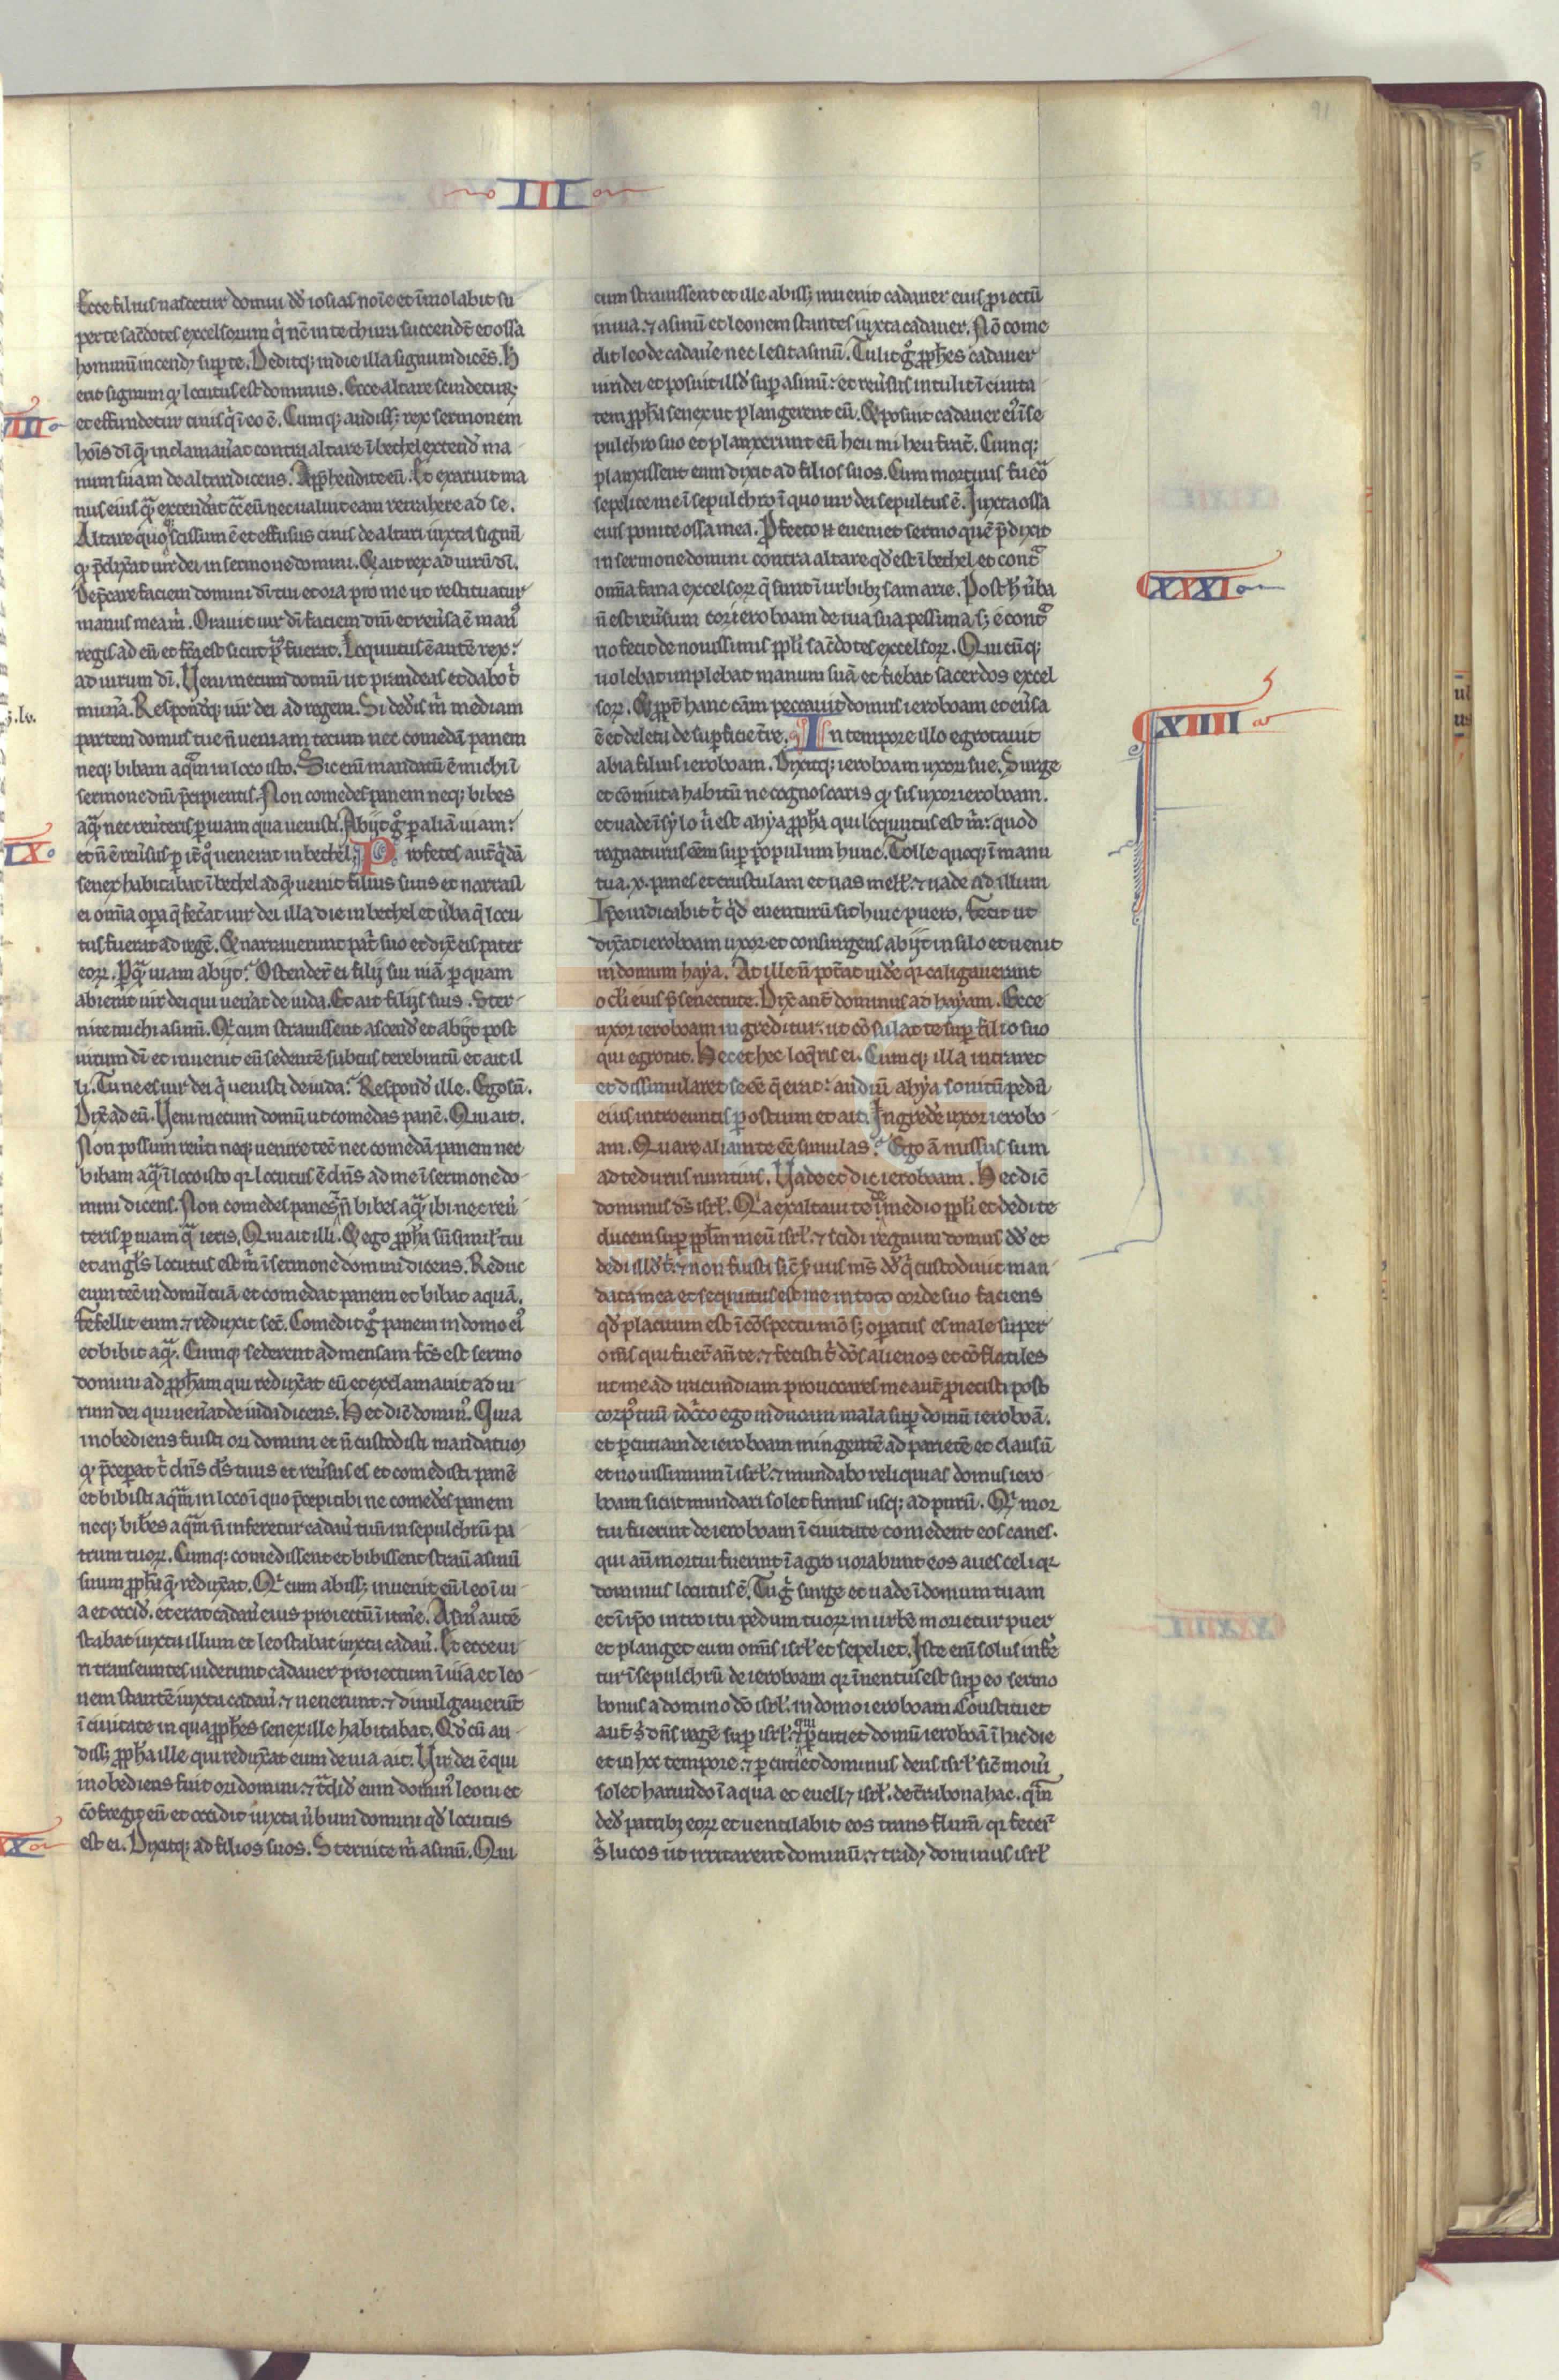 III
Ecce filius nascetur domui dd̄ iosias noīe et īmolabit su
per te sac̄dotes excelsorum q̇ nc̄ in te thura succendūt et ossa
hominū incendꝫ sup̱ te. Deditqꝫ in die illa signum dicēs. h̄
erit signum qꝫ locutus est dominus. Ecce altare scindeturꝫ
et effundetur cinis q̇ ī eo ē. Cumqꝫ audissꝫ rex sermonem
hoīs dī quē inclamau̇at contra altare ī bethel extend̄ ma
num suam de altari dicens. App̱hendite eū. Et exaruit ma
nus eius quā extend̄at cō̄ eū nec ualuit eam retrahere ad se.
Altare quoqꝫ scissum ē et effusus cinis de altari iuxta signū
qꝫ p̄dix̄at uir dei in sermone domini. Et ait rex ad uirū dī.
Dep̄care faciem domini dī tui et ora pro me ut restituatur
manus mea m̄. Orauit uir dī faciem dnī et reu̇sa ē manꝰ
regis ad eū et fc̄a est sicut p̱ꝰ fuerat. Lequutus ē autē rex.
ad uirum dī. Ueni mecum domū ut prandeas et dabo t̄
mun̄a. Respond̄qꝫ uir dei ad regem. Si ded̄is m̄ mediam
partem domus tue n̄ ueniam tecum nec comedā panem
neqꝫ bibam aquam in loco isto. Sic enī mandatū ē michi ī
sermone dnī p̄cipientis. Non comedes panem neqꝫ bibes
aquā nec reu̇teris p̱ uiam qua uenisti. Abijt gͦ p̱ aliā uiam.
et n̄ ē reu̇sus p̱ it̄ qͦ uenerat in bethel. Profetes aut̄ q̇dā
senex habitabat ī bethel ad quē uenit filius suus et narrauit
ei om̄ia opa q̄ fec̄at uir dei illa die in bethel et u̇ba q̄ locu
tus fuerat ad regē. Et narrauerunt pat̄ suo et dix̄ eis pater
eoꝝ. P̱ quā uiam abijt. Ostender̄t ei filij sui uiā p̱ quam
abierat uir dei qui uen̄at de iuda. Et ait filijs suis. Ster
nite michi asinū. Qͥ cum strauissent ascend̄ et abijt post
uirum dī et inuenit eū sedentē subtus terebintū et ait il
li. Tu ne es uir dei q̇ uenisti de iuda. Respond̄ ille. Ego sū.
Dix̄ ad eū. Ueni mecum domū ut comedas panē. Qui ait.
Non possum reu̇ti neqꝫ uenire tecū nec comedā panem nec
bibam aquā ī loco isto qꝛ locutus ē dn̄s ad me ī sermone do
mini dicens. Non comedes panes n̄ bibes aquā ibi nec reu̇
teris p̱ uiam quā ieris. Qui ait illi. Et ego pp̱ha sū similꝭ tui
et angl̄s locutus est m̄ ī sermone domini dicens. Reduc
eum tecū in domū tuā et comedat panem et bibat aquā.
Fefellit eum. ⁊ reduxit secū. Comedit gͦ panem in domo eiꝰ
et bibit aquā. Cumqꝫ sederent ad mensam fc̄s est sermo
domini ad pp̱ham qui redux̄at eū et exclamauit ad ui
rum dei qui uen̄at de iuda dicens. Hec dic̄ dominꝰ. Quia
inobediens fuisti ori domini et n̄ custodisti mandatum
qꝫ p̄cep̱at t̄ dn̄s ds̄ tuus et reu̇sus es et comedisti panē
et bibisti aquam in loco ī quo p̄cepi tibi ne comed̄es panem
neqꝫ bib̄es aquam n̄ inferetur cadau̇ tuū in sepulchrū pa
trum tuoꝝ. Cumqꝫ comedissent et bibissent strau̇ asinū
suum pp̱hē quē redux̄at. Qͥ cum abissꝫ inuenit eū leo ī ui
a et occid̄. et erat cadau̇ eius proiectū ī itin̄e. Asinꝰ autē
stabat iuxta illum et leo stabat iuxta cadau̇. Et ecce ui
ri transeuntes uiderunt cadauer proiectum ī uia et leo
nem stantē iuxta cadau̇. ⁊ uenerunt. ⁊ diuulgauerūt
ī ciuitate in qua pp̱hes senex ille habitabat. Qd̄ cū au
dissꝫ pp̱ha ille qui redux̄at eum de uia ait. Uir dei ē qui
inobediens fuit ori domini. ⁊ t̄did̄ eum dominꝰ leoni et
cōfregit eū et occidit iuxta u̇bum domini qd̄ locutus
est ei. Dixitqꝫ ad filios suos. Sternite m̄ asinū. Qui
cum strauissent et ille abissꝫ inuenit cadauer eius proiectū
in uia. ⁊ asinū et leonem stantes iuxta cadauer. Nō come
dit leo de cadau̇e nec lesit asinū. Tulit gͦ pp̱hes cadauer
uiri dei et posuit illd̄ sup̱ asinū. et reu̇sus intulit ī ciuita
tem pp̱ha senex ut plangerent eū. Et posuit cadauer eiꝰ ī se
pulchro suo et planxerunt eū heu mi heu frat̄. Cumqꝫ
planxissent eum dixit ad filios suos. Cum mortuus fuero
sepelite me ī sepulchro ī quo uir dei sepultus ē. Iuxta ossa
eius ponite ossa mea. Profecto n̄ eueniet sermo quē p̄dixit
in sermone domini contra altare qd̄ est ī bethel et conta
om̄ia fana excelsoꝝ q̄ sunt ī urbibꝫ samarie. Post h̄ u̇ba
n̄ est reu̇sum cor ieroboam de uia sua pessima sꝫ e cont̄
rio fecit de nouissimis ppl̄i sac̄dotes excelsoꝝ. Quicūqꝫ
uolebat implebat manum suā et fiebat sacerdos excel
soꝝ. Et ppt̄ hanc cām peccauit domus ieroboam et eu̇sa
ē et deleta de sup̱ficie tr̄e. In tempore illo egrotauit
abia filius ieroboam. Dixitqꝫ ieroboam uxori sue. Surge
et cōmuta habitū ne cognoscaris qꝫ sis uxor ieroboam.
et uade ī sylo u̇ est ahya pp̱ha qui lequutus est m̄. quod
regnaturus eēm sup̱ populum hunc. Tolle quoqꝫ ī manu
tua. x. panes et crustulam et uas mell̄. ⁊ uade ad illum
Ip̄e indicabit t̄ qd̄ euenturū sit huic puero. Fecit ut
dix̄at ieroboam uxor et consurgens abijt in silo et uenit
in domum haya. At ille n̄ pot̄at uid̄e qꝛ caligauerant
ocl̄i eius p̄ senectute. Dix̄ aut̄ dominus ad hayam. Ecce
uxor ieroboam ingreditur. ut cōsulat te sup̱ filio suo
qui egrotat. Hec et hec loq̄ris ei. Cumqꝫ illa intraret
et dissimularet se eē q̄ erat. audiu̇ ahya sonitū pedū
eius introeuntis p̱ ostium et ait. Ingred̄e uxor ierobo
am. Quare aliam te eē simulas. Ego ā missus sum
ad te durus nuntius. Uade et dic ieroboam. Hec dic̄
dominus ds̄ isrl̄. Qꝛ exaltaui te de medio ppl̄i et dedi te
ducem sup̱ ppl̄m meū isrl̄. ⁊ scidi regnum domus dd̄ et
dedi illd̄ t̄. ⁊ non fuisti sic̄ s̄uus ms̄ dd̄ q̇ custodiuit man
data mea et sequutus est me in toto corde suo faciens
qd̄ placitum est ī cōspectu mō sꝫ op̱atus es male super
om̄s qui fuer̄ an̄ te. ⁊ fecisti t̄ dōs alienos et cōflatiles
ut me ad iracundiam prouocares me aut̄ proiecisti post
corpꝰ tuū idc̄co ego inducam mala sup̱ domū ieroboā.
et p̱cutiam de ieroboam mingentē ad parietē et clausū
et nouissimum ī isrl̄. ⁊ mundabo reliquias domus iero
boam sicut mundari solet fimus usqꝫ ad purū. Qͥ mor
tui fuerint de ieroboam ī ciuitate comedent eos canes.
qui aūt mortui fuerint ī agro uorabunt eos aues celi qꝛ
dominus locutus ē. Tu gͥ surge et uade ī domum tuam
et ī ip̄o introitu pedum tuoꝝ in urbē morietur puer
et planget eum om̄is isrl̄ et sepeliet. Iste enī solus infe
tur ī sepulchrū de ieroboam qꝛ īuentus est sup̱ eo sermo
bonus a domino dō isrl̄. in domo ieroboam. Constituet
aut̄ s̄ dn̄s regē sup̱ isrl̄. qui p̱cutiet domū ieroboā ī hac die
et in hoc tempore. ⁊ p̱cutiet dominus deus isrl̄ sic̄ mou̇i
solet harundo ī aqua et euellꝫ isrl̄. de tr̄a bona hac. quā
ded̄ patribꝫ eoꝝ et uentilabit eos trans flum̄ qꝛ fecer̄t
s̄ lucos ut irritarent dominū. ⁊ tradꝫ dominus isrl̄
XXXI
XIIII
91